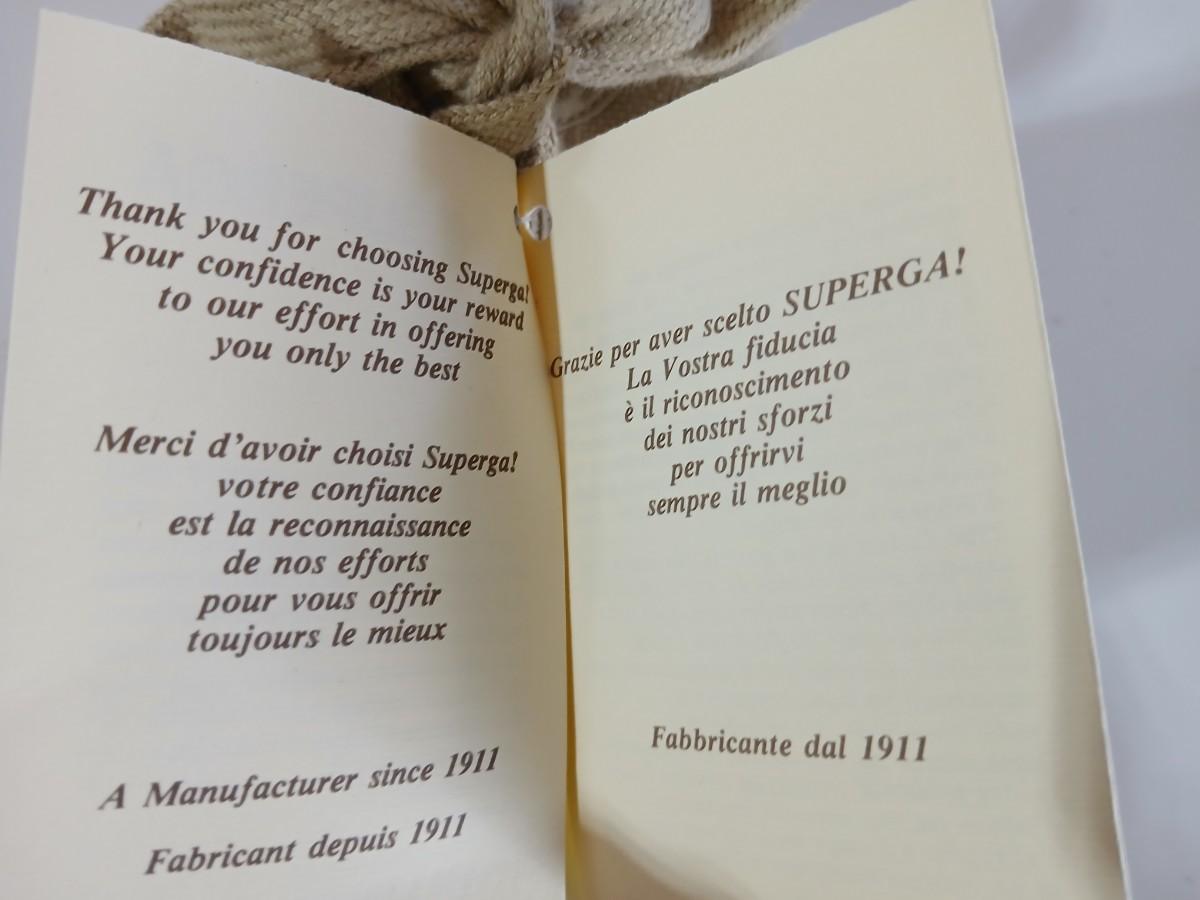 Thank you for choosing Superga!
Your confidence is your reward
to our effort in offering
you only the best
Merci d'avoir choisi Superga!
votre confiance
est la reconnaissance
de nos efforts
pour vous offrir
toujours le mieux
A Manufacturer since 1911
Fabricant depuis 1911
Grazie per aver scelto SUPERGA!
La Vostra fiducia
è il riconoscimento
dei nostri sforzi
per offrirvi
sempre il meglio
Fabbricante dal 1911